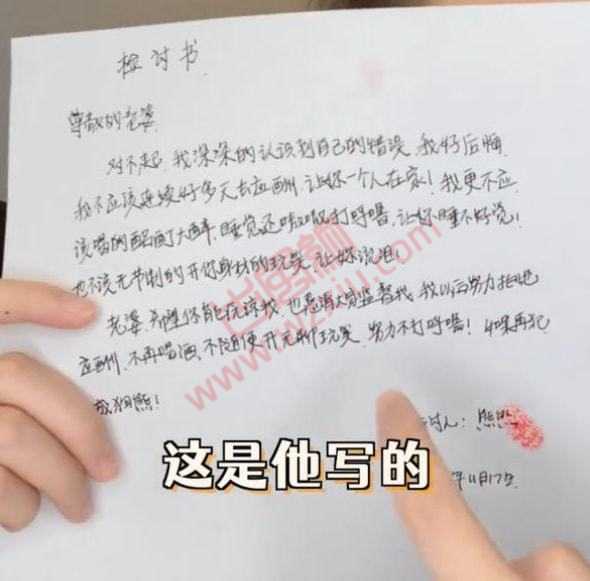 检讨书
尊敬的老婆
对不起，我深深的认识到自己的错误，我好后悔，
我不应该连续好多天去应酬，让你一个人在家！我更不应
该喝的酩酊大醉，睡觉还打呼噜，让你睡不好觉！
也不该无节制的开你身材的玩笑，让你流泪！
老婆，希望你能原谅我，也恳请大家监督我，我以后努力拒绝
应酬，不再喝酒，不随便开无聊玩笑，努力不打呼噜！如果再犯
我狗熊！
讨人：熊熊
年11月17日
这是他写的
www.wzxiu.com